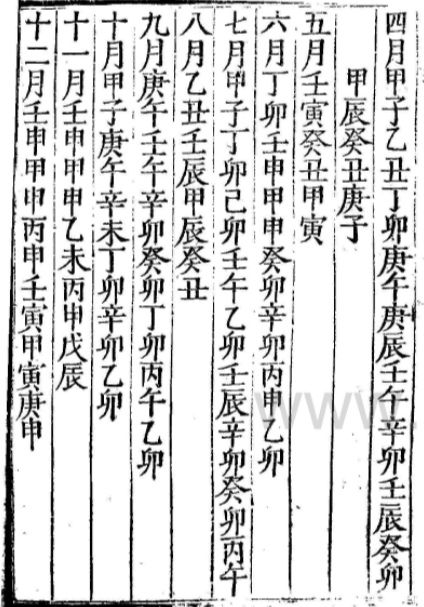 四月甲子乙丑丁卯庚午庚辰壬午辛卯壬辰癸卯
甲辰癸丑庚子
五月壬寅癸丑甲寅
六月丁卯壬申甲申癸卯辛卯丙申乙卯
七月甲子丁卯己卯壬午乙卯壬辰辛卯癸卯丙午
八月乙丑壬辰甲辰癸丑
九月庚午壬午辛卯癸卯丁卯丙午乙卯
十月甲子庚午辛未丁卯辛卯乙卯
十一月壬申甲申乙未丙申戊辰
十二月壬申甲申丙申壬寅甲寅庚申
www.